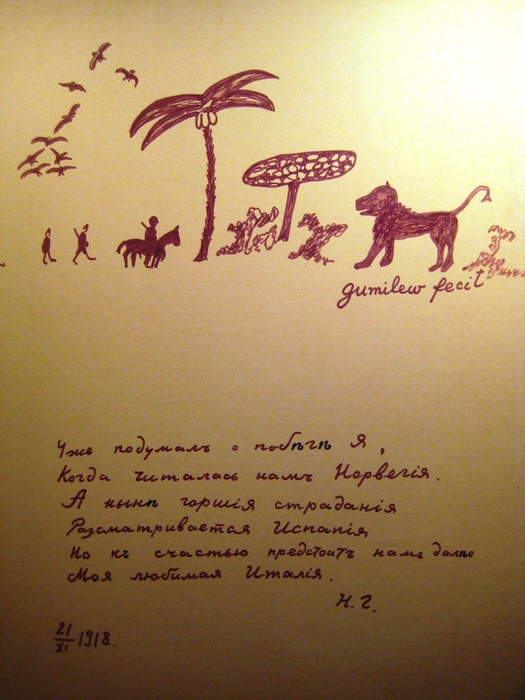 gumilew fecit
Уже подумалъ о побѣгѣ я,
Когда читалась намъ Норвегія.
А нынѣ горшія страданія
Разсматривается Испанія,
Но къ счастью предстоитъ намъ далѣе
Моя любимая Италія.
Н. Г.
21/XI 1918.